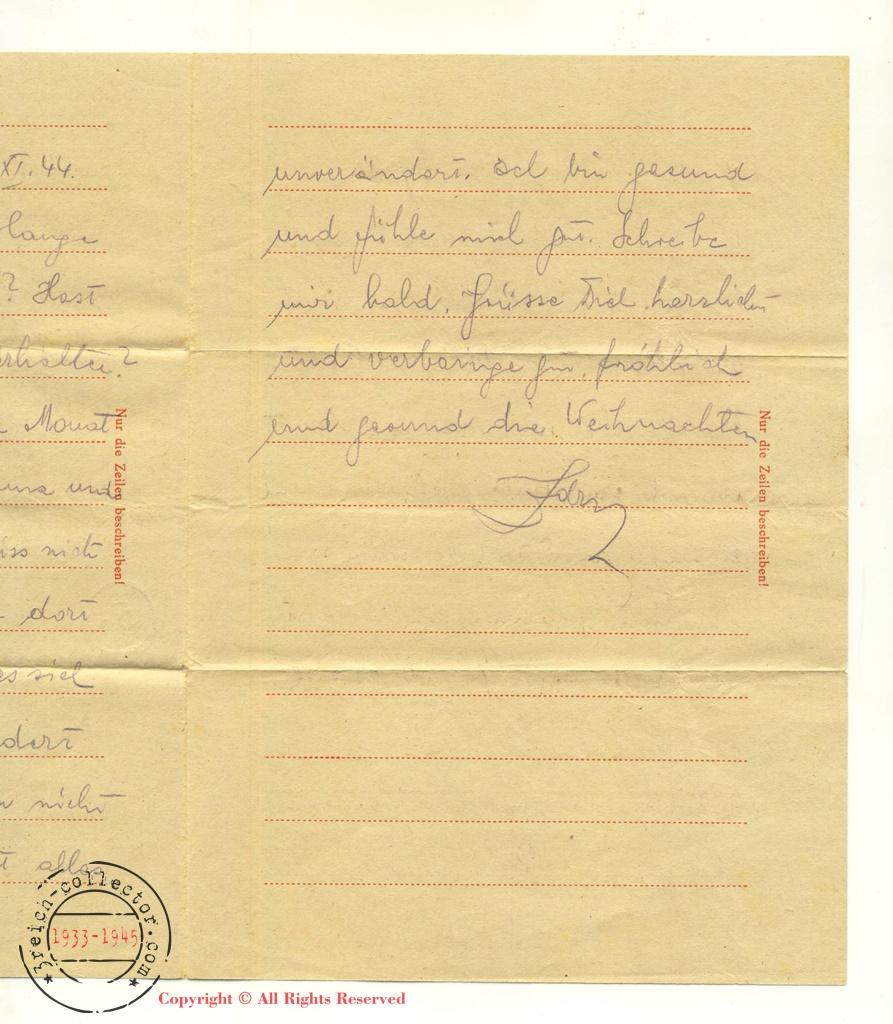 XI. 44.
lange
? Hast
erhalten?
Monat
und
iss nich
dort
es sich
dert
nicht
t alles
Nur die Zeilen beschreiben!
unverändert. Ich bin gesund
und fühle mich gut. Schreibe
mir bald. Grüsse Dich herzlichst
und verbringe gut, fröhlich
und gesund die Weihnachten
Nur die Zeilen beschreiben!
3reich-collector.com
1933-1945
Copyright © All Rights Reserved